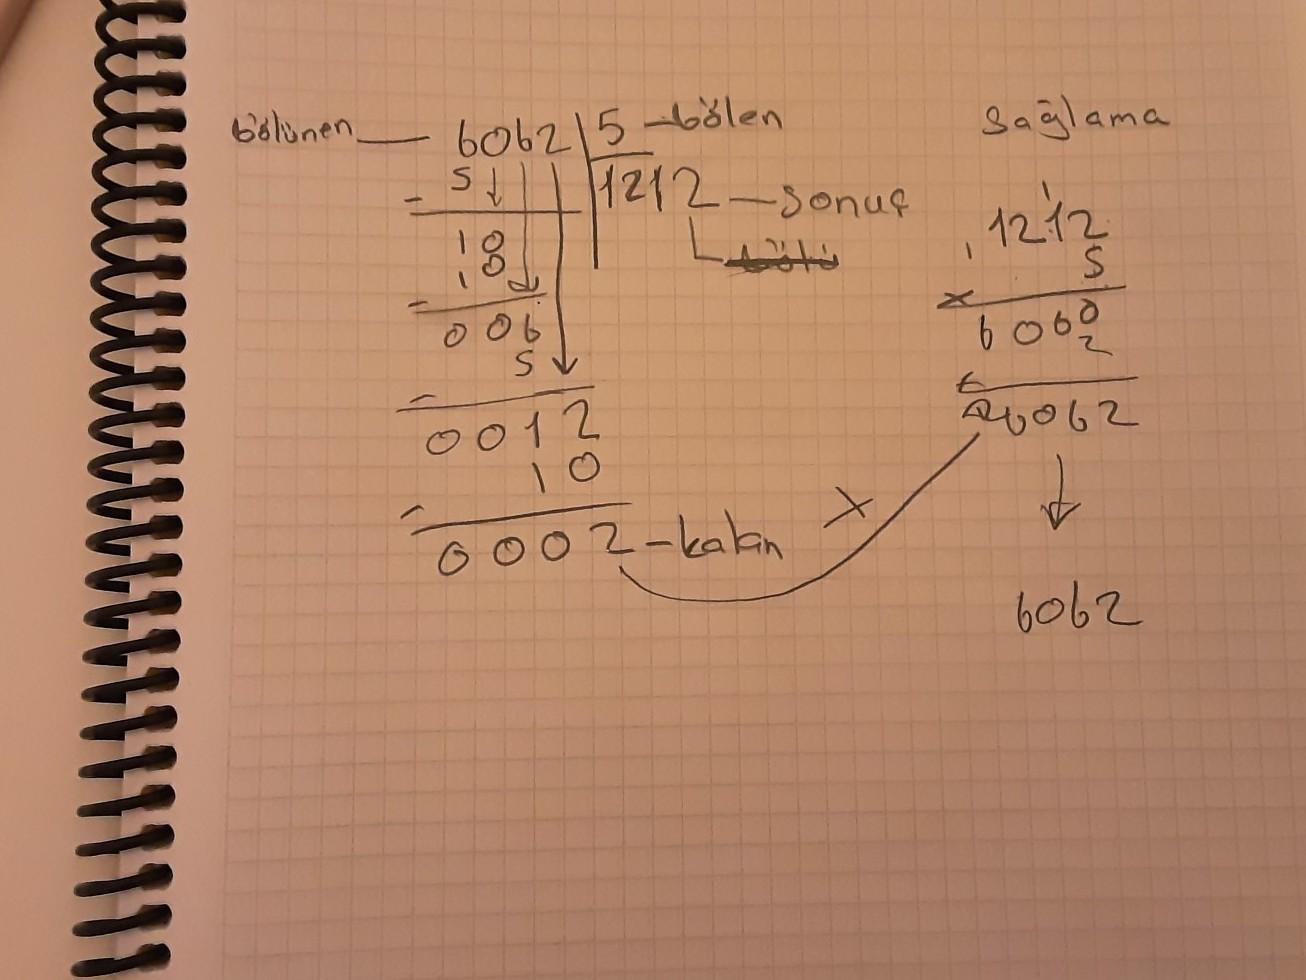 bölünen — 6062 | 5 — bölen
- 5
1212 — sonuç
10
- 10
006
- 5
0012
- 10
0002 - kalan
Sağlama
1
1212
1
x 5
6060
+ 2
6062
x
6062